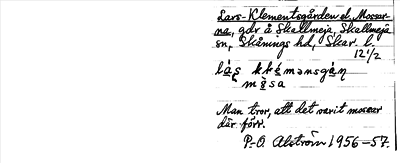 Lars-Klementsgården el. Mossar-
na, gdr å Skallmeja, Skallmeja
sn, Skånings hd, Skar. l.
12 1/2
Man tror, att det varit mossar
där förr.
P.-O. Alström 1956-57.